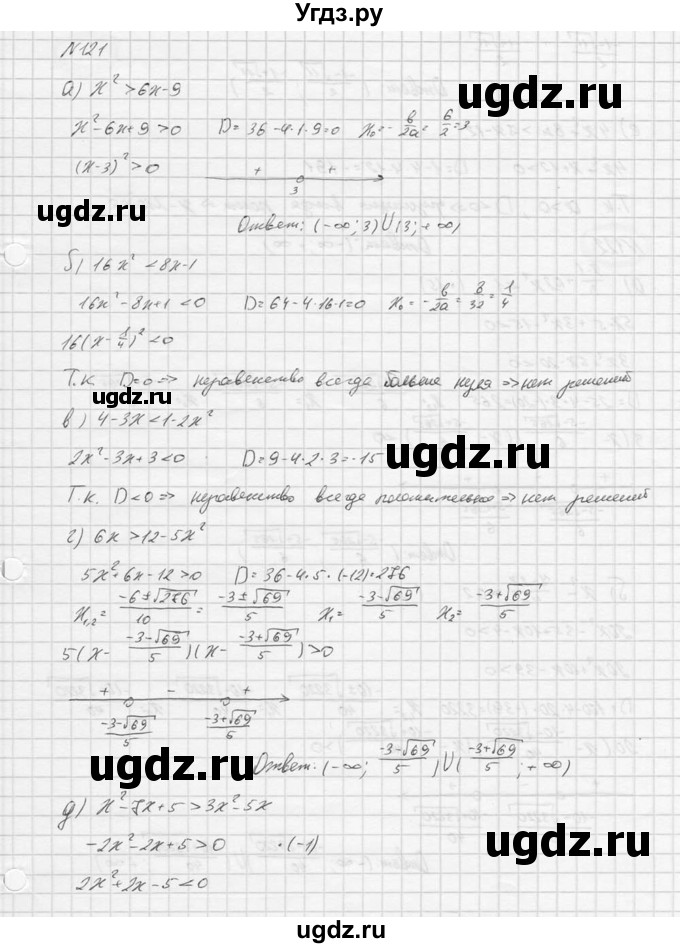 Угдз.ру
N121
а) x² > 6x - 9
x² - 6x + 9 > 0 D = 36 - 4·1·9 = 0 x₀ = -b/2a = 6/2 = 3
(x - 3)² > 0
+ +
3
ugdz.ru ugdz.ru
Ответ: (-∞; 3) U (3; +∞)
б) 16x² < 8x - 1
16x² - 8x + 1 < 0 D = 64 - 4·16·1 = 0 x₀ = -b/2a = 8/32 = 1/4
16(x - 1/4)² < 0
Т.к. D = 0 => неравенство всегда больше нуля => нет решений
ugdz.ru
в) 4 - 3x < 1 - 2x²
ugdz.ru
2x² - 3x + 3 < 0 D = 9 - 4·2·3 = -15
Т.к. D < 0 => неравенство всегда положительно => нет решений
г) 6x > 12 - 5x²
5x² + 6x - 12 > 0 D = 36 - 4·5·(-12) = 276
ugdz.ru
x₁,₂ = (-6±√276)/10 = (-3±√69)/5 x₁ = (-3-√69)/5 x₂ = (-3+√69)/5
5(x - (-3-√69)/5)(x - (-3+√69)/5) > 0
ugdz.ru
+ - +
(-3-√69)/5 (-3+√69)/5
ugdz.ru
Ответ: (-∞; (-3-√69)/5) U ((-3+√69)/5; +∞)
д) x² - 7x + 5 > 3x² - 5x
-2x² - 2x + 5 > 0 ·(-1)
ugdz.ru
2x² + 2x - 5 < 0
ugdz.ru
ugdz.ru